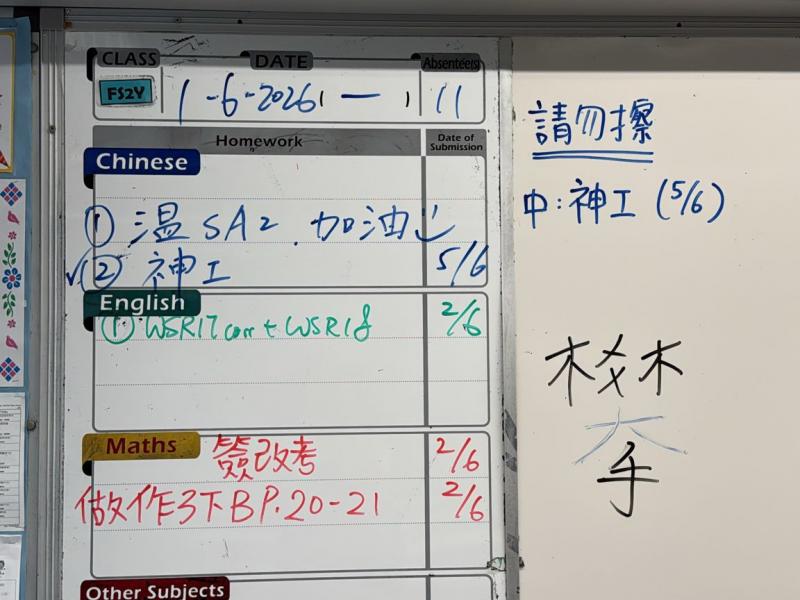 CLASS DATE Absentee(s)
FS2Y 1-6-2026 (一) 11
Homework Date of Submission
Chinese
① 温 SA2 . 加油
✓② 神工 5/6
English
① WSR17 corr + WSR18 2/6
Maths
簽改考 2/6
做作3下B P.20-21 2/6
Other Subjects
請勿擦
中:神工 (5/6)
手